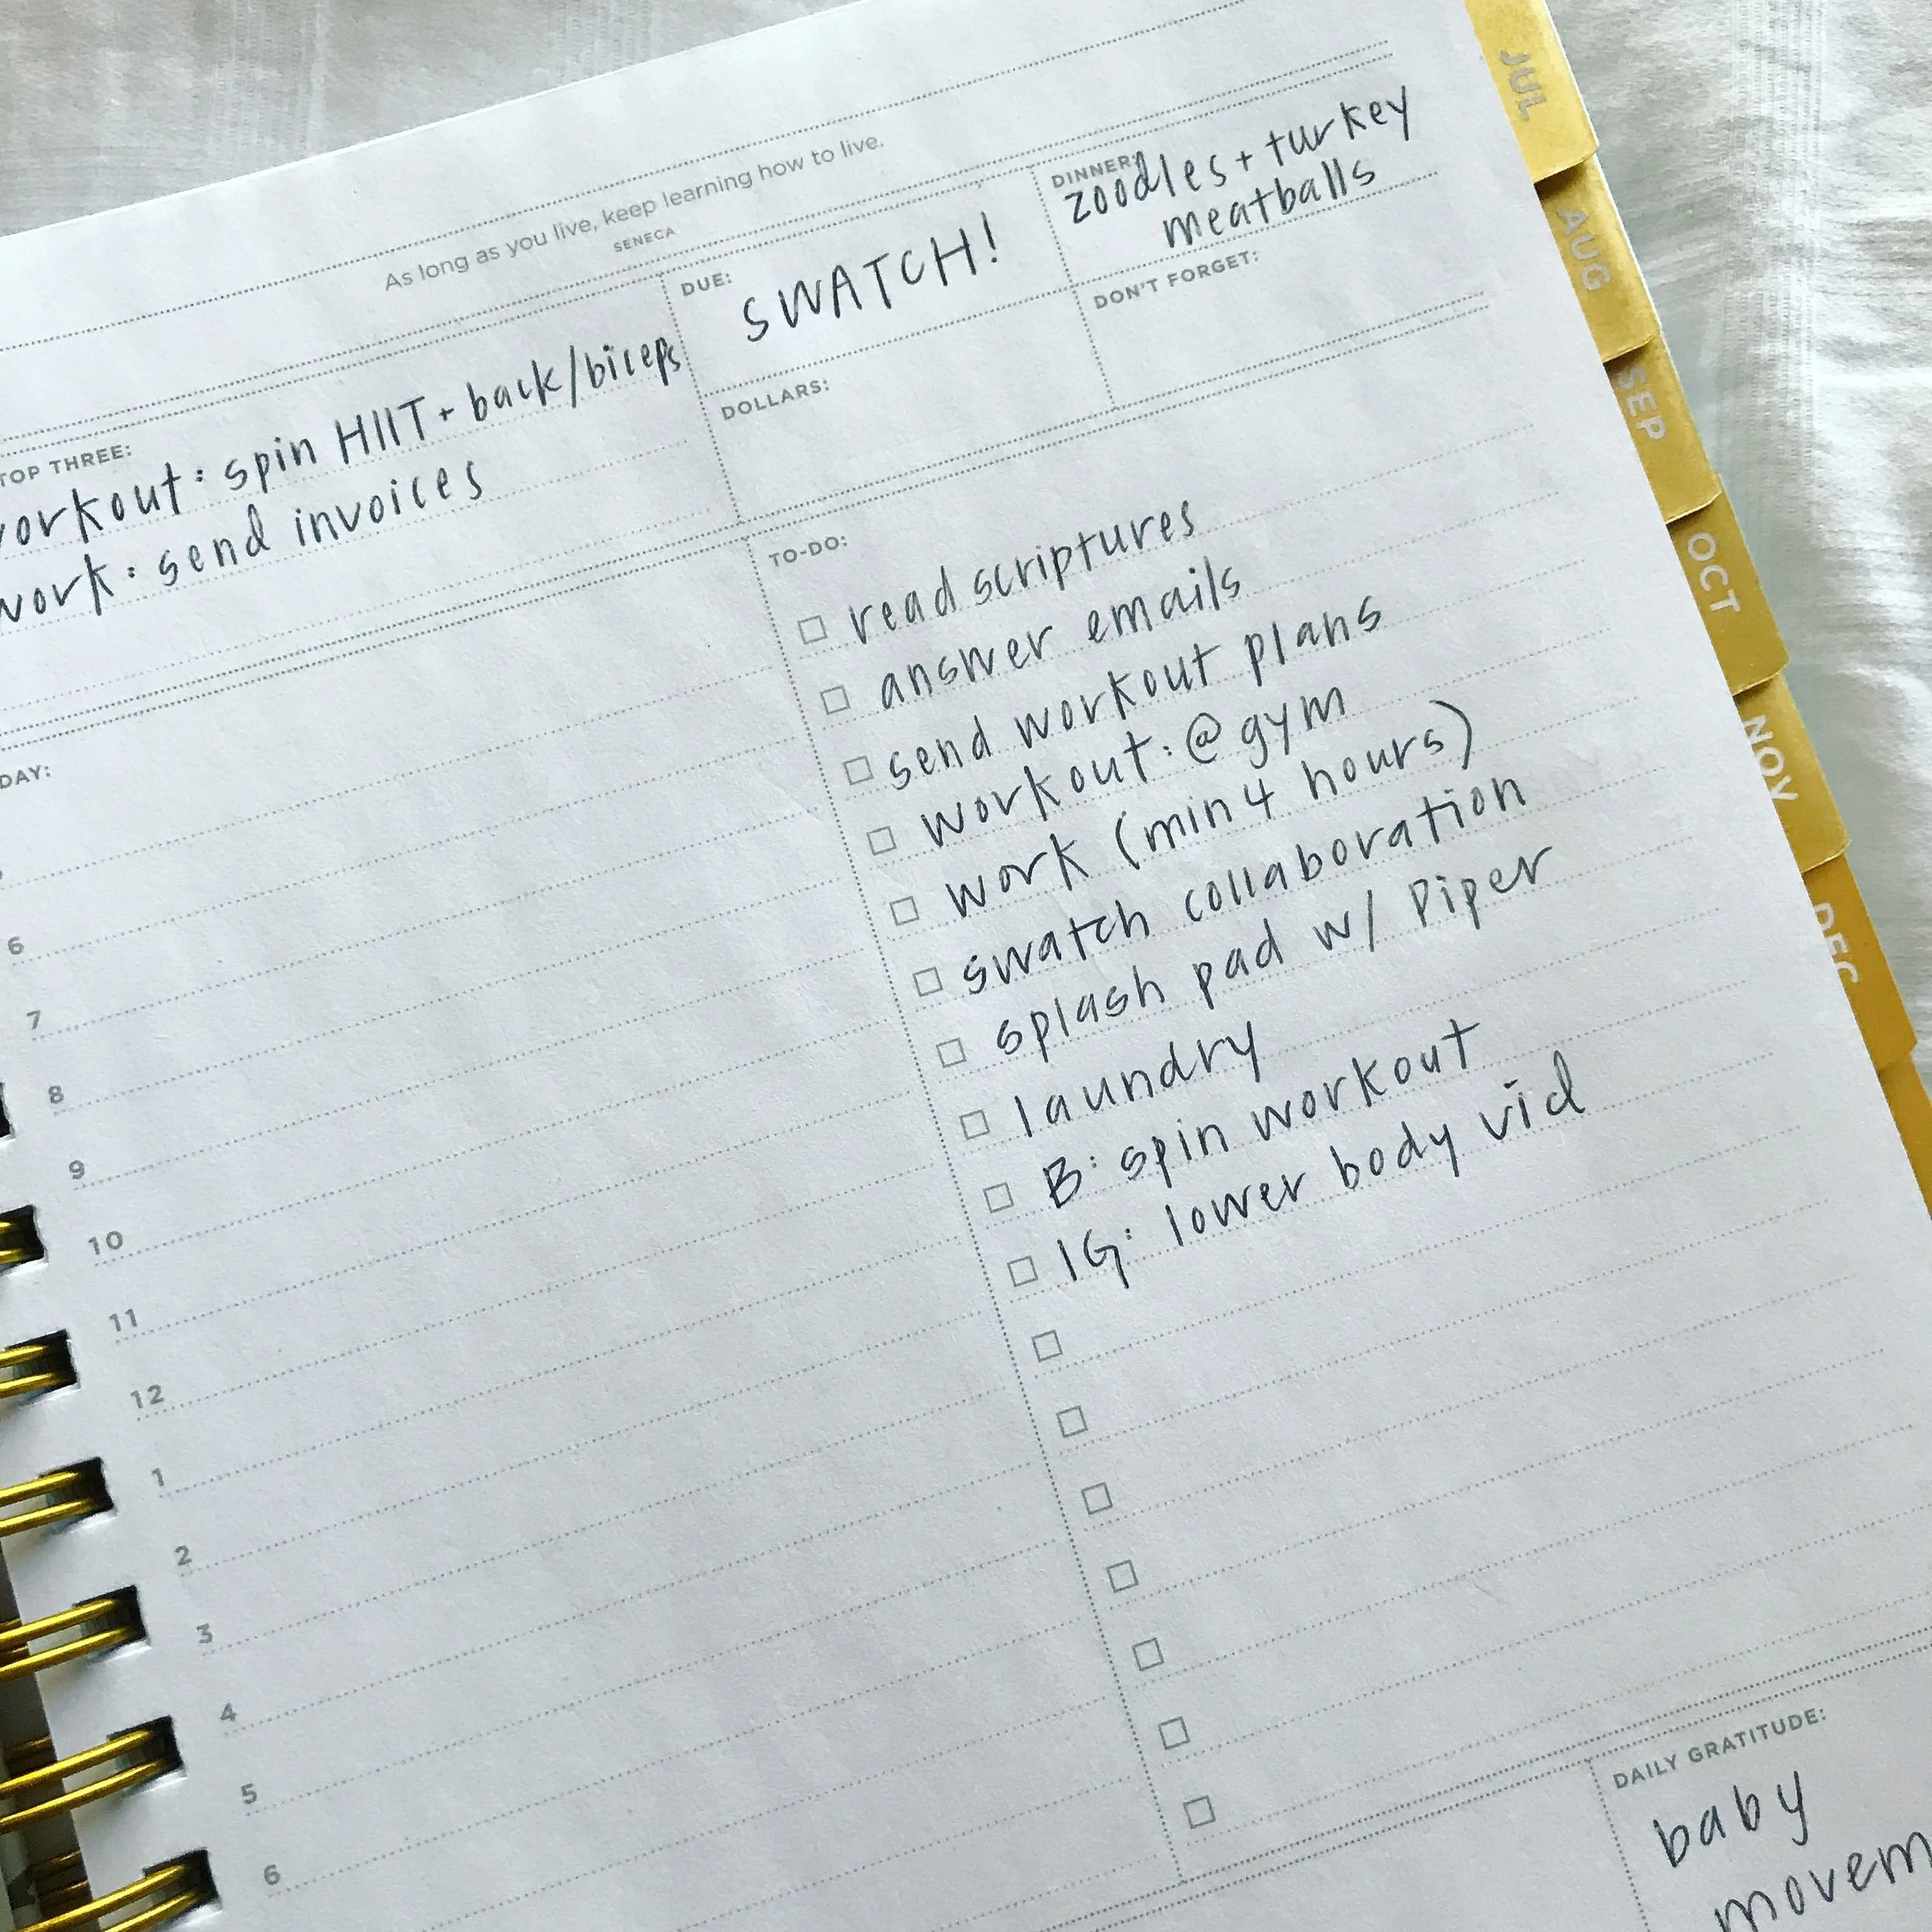 As long as you live, keep learning how to live.
SENECA
TOP THREE:
workout: spin HIIT + back/biceps
work: send invoices
DUE:
SWATCH!
DINNER:
zoodles + turkey
meatballs
DOLLARS:
DON'T FORGET:
DAY:
6
7
8
9
10
11
12
1
2
3
4
5
6
TO-DO:
read scriptures
answer emails
send workout plans
workout: @ gym
work (min 4 hours)
swatch collaboration
splash pad w/ Piper
laundry
B: spin workout
IG: lower body vid
DAILY GRATITUDE:
baby
movem
JUL
AUG
SEP
OCT
NOV
DEC